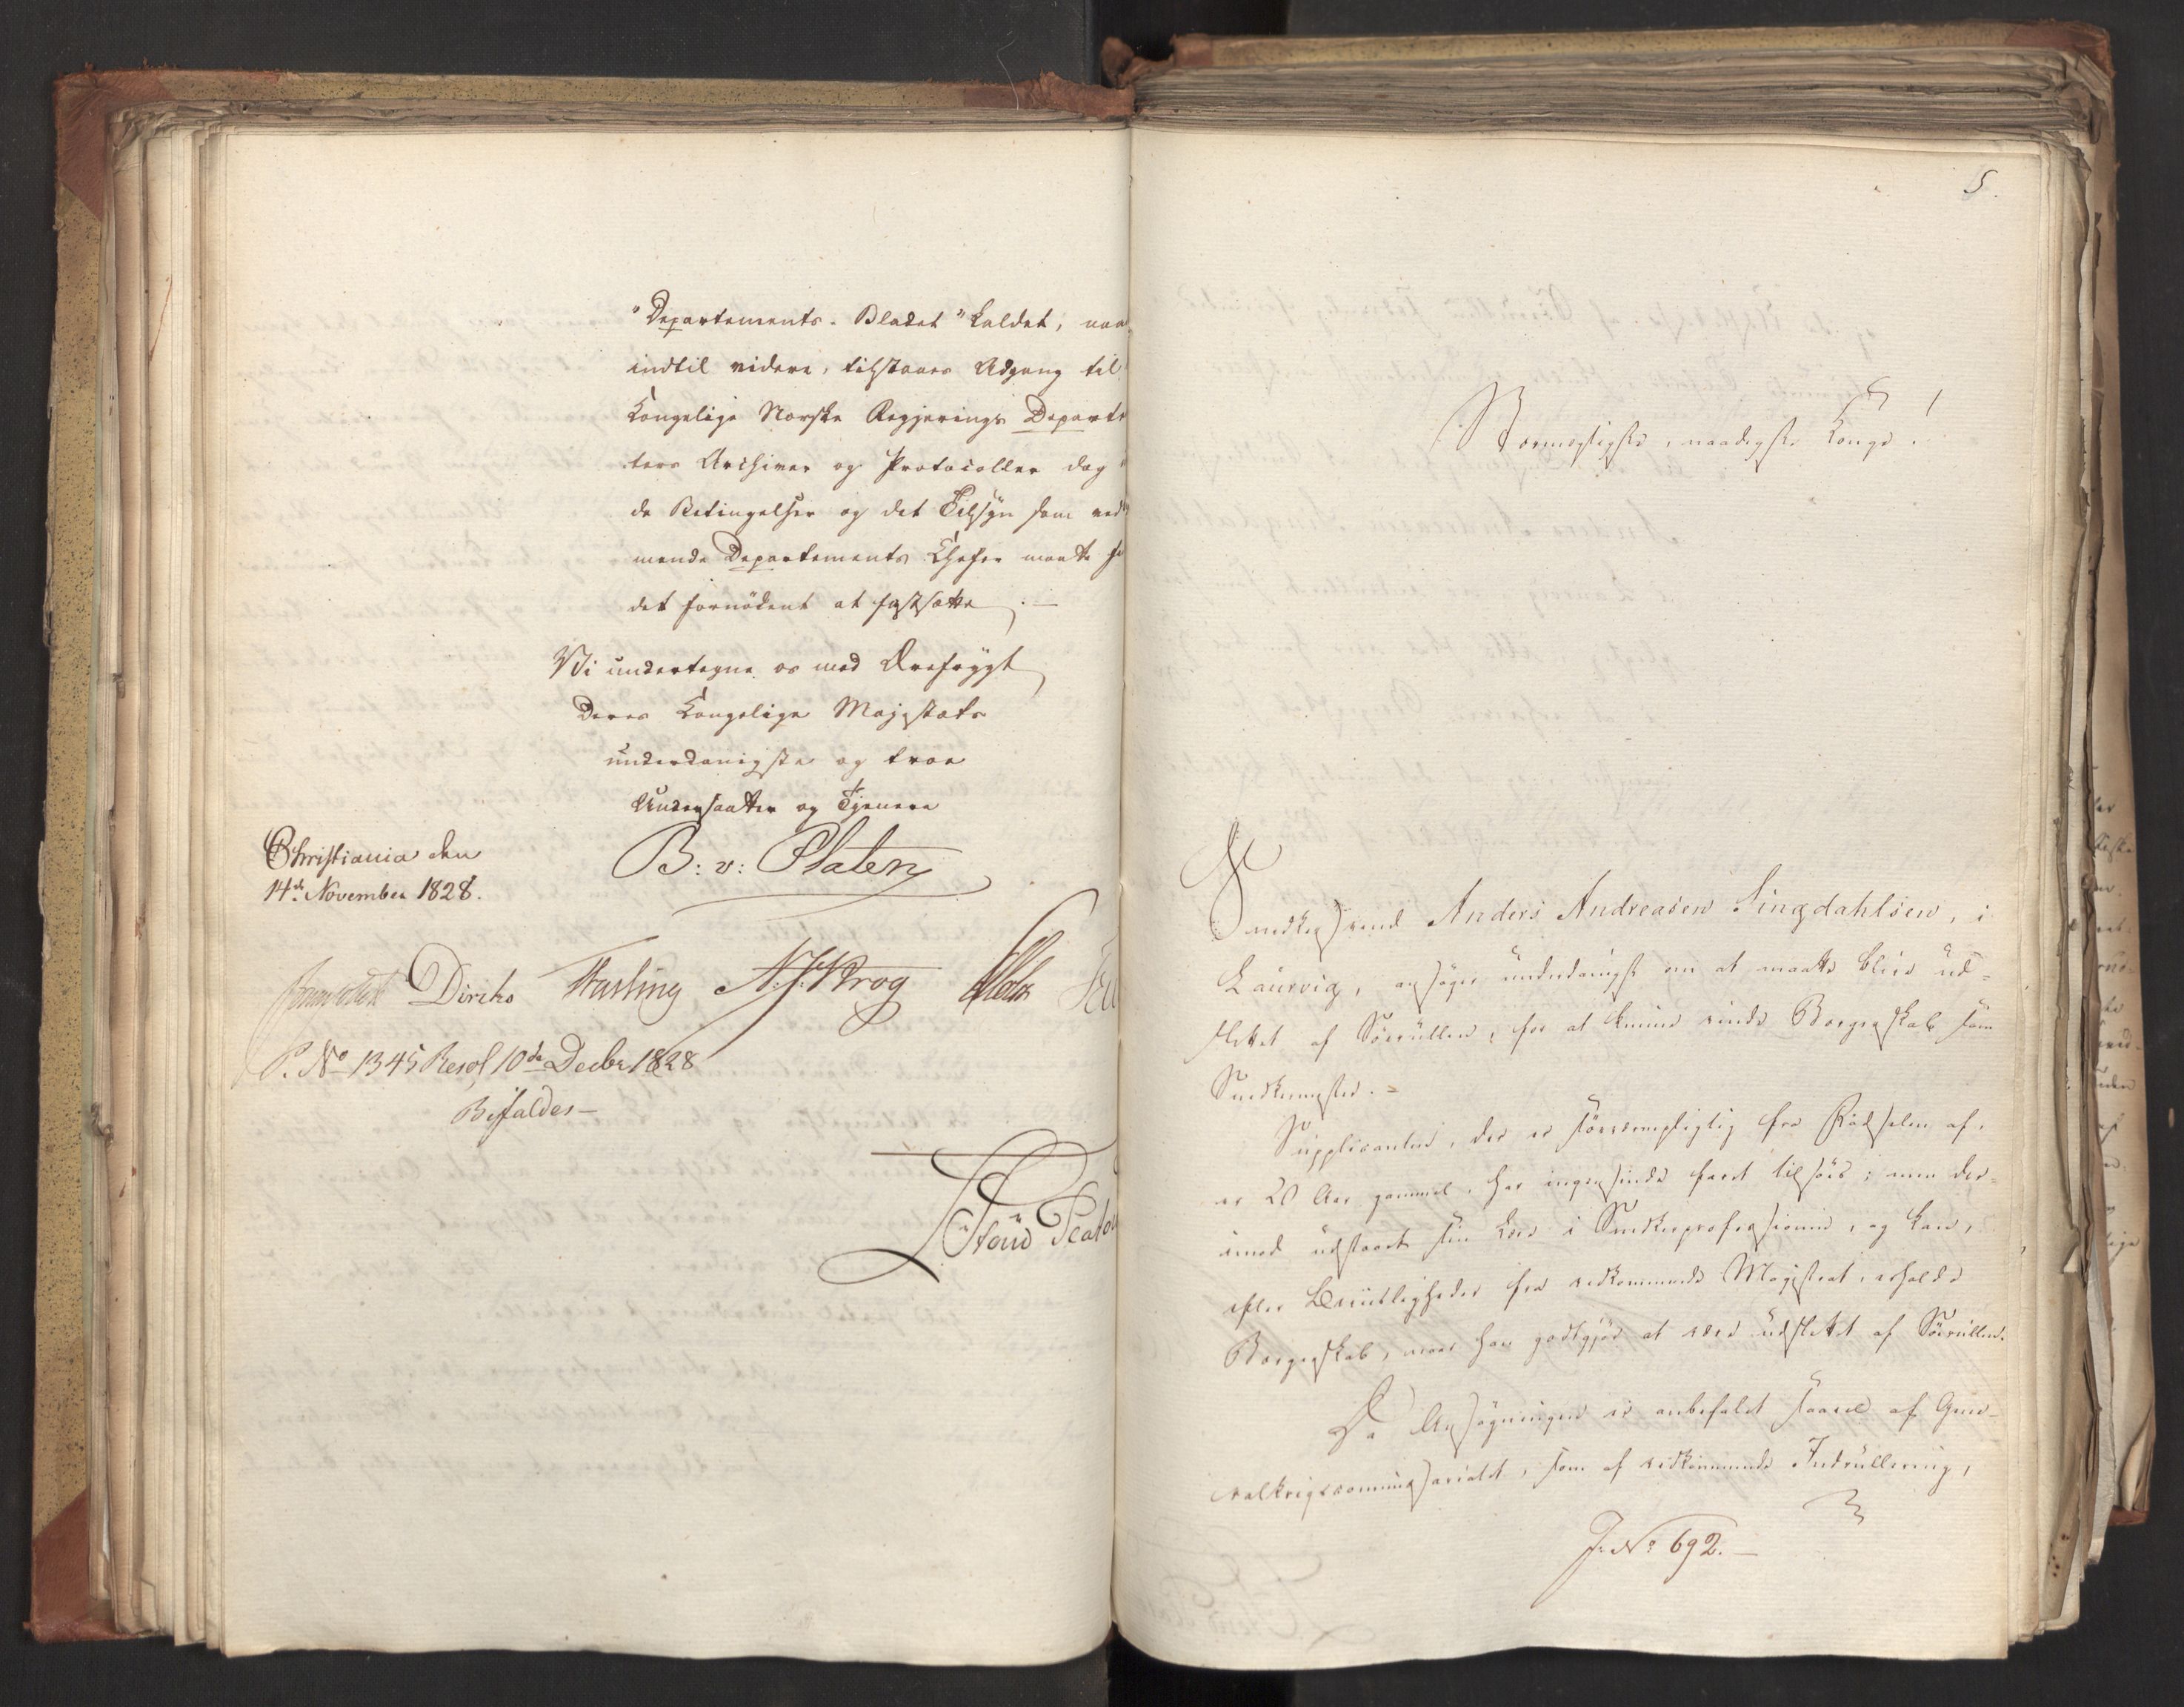 "Departements-Bladet" kaldet, naa
indtil videre, tilstaaes Adgang til
Kongelige Norske Regjerings Departe
ters Archiver og Protocoller dog
de Betingelser og det Tilsyn som ved
mende Departements Chefer maatte
det fornödent at fastsætte.—
Vi undertegne os med Ærefrygt
Deres Kongelige Majestæts
underdanigste og troe
Undersaatter og Tjenere
Christiania den
14de November 1828.
B: v: Platen
Diriks Fasting N. J. Krog Holst
P. No 1345 Resol 10de Decbr 1828
Bifaldes—
5.
Stormægtigste, naadigste Konge!
Snedkersvend Anders Andreasen Lingdahlsen, i
Laurvig, ansöger underdanigst om at maatte blive ud-
slettet af Söerullen, for at kunne vinde Borgerskab som
Snedkermester.-
Supplicanten, der er söeværnepligtig fra Födselen af,
er 20 Aar gammel, har ingensinde faret tilsöes; men der-
imod udstaaet sin Lære i Snedkerprofessionen, og kan,
efter Beviisligheder fra vedkommende Magistrat, erholde
Borgerskab, naar han godtgjör at være udslettet af Söerullen.
Da Ansögningen er anbefalet saavel af Gene-
ralkrigscommissariatet, som af vedkommende Indrullering,
J. No 692.—